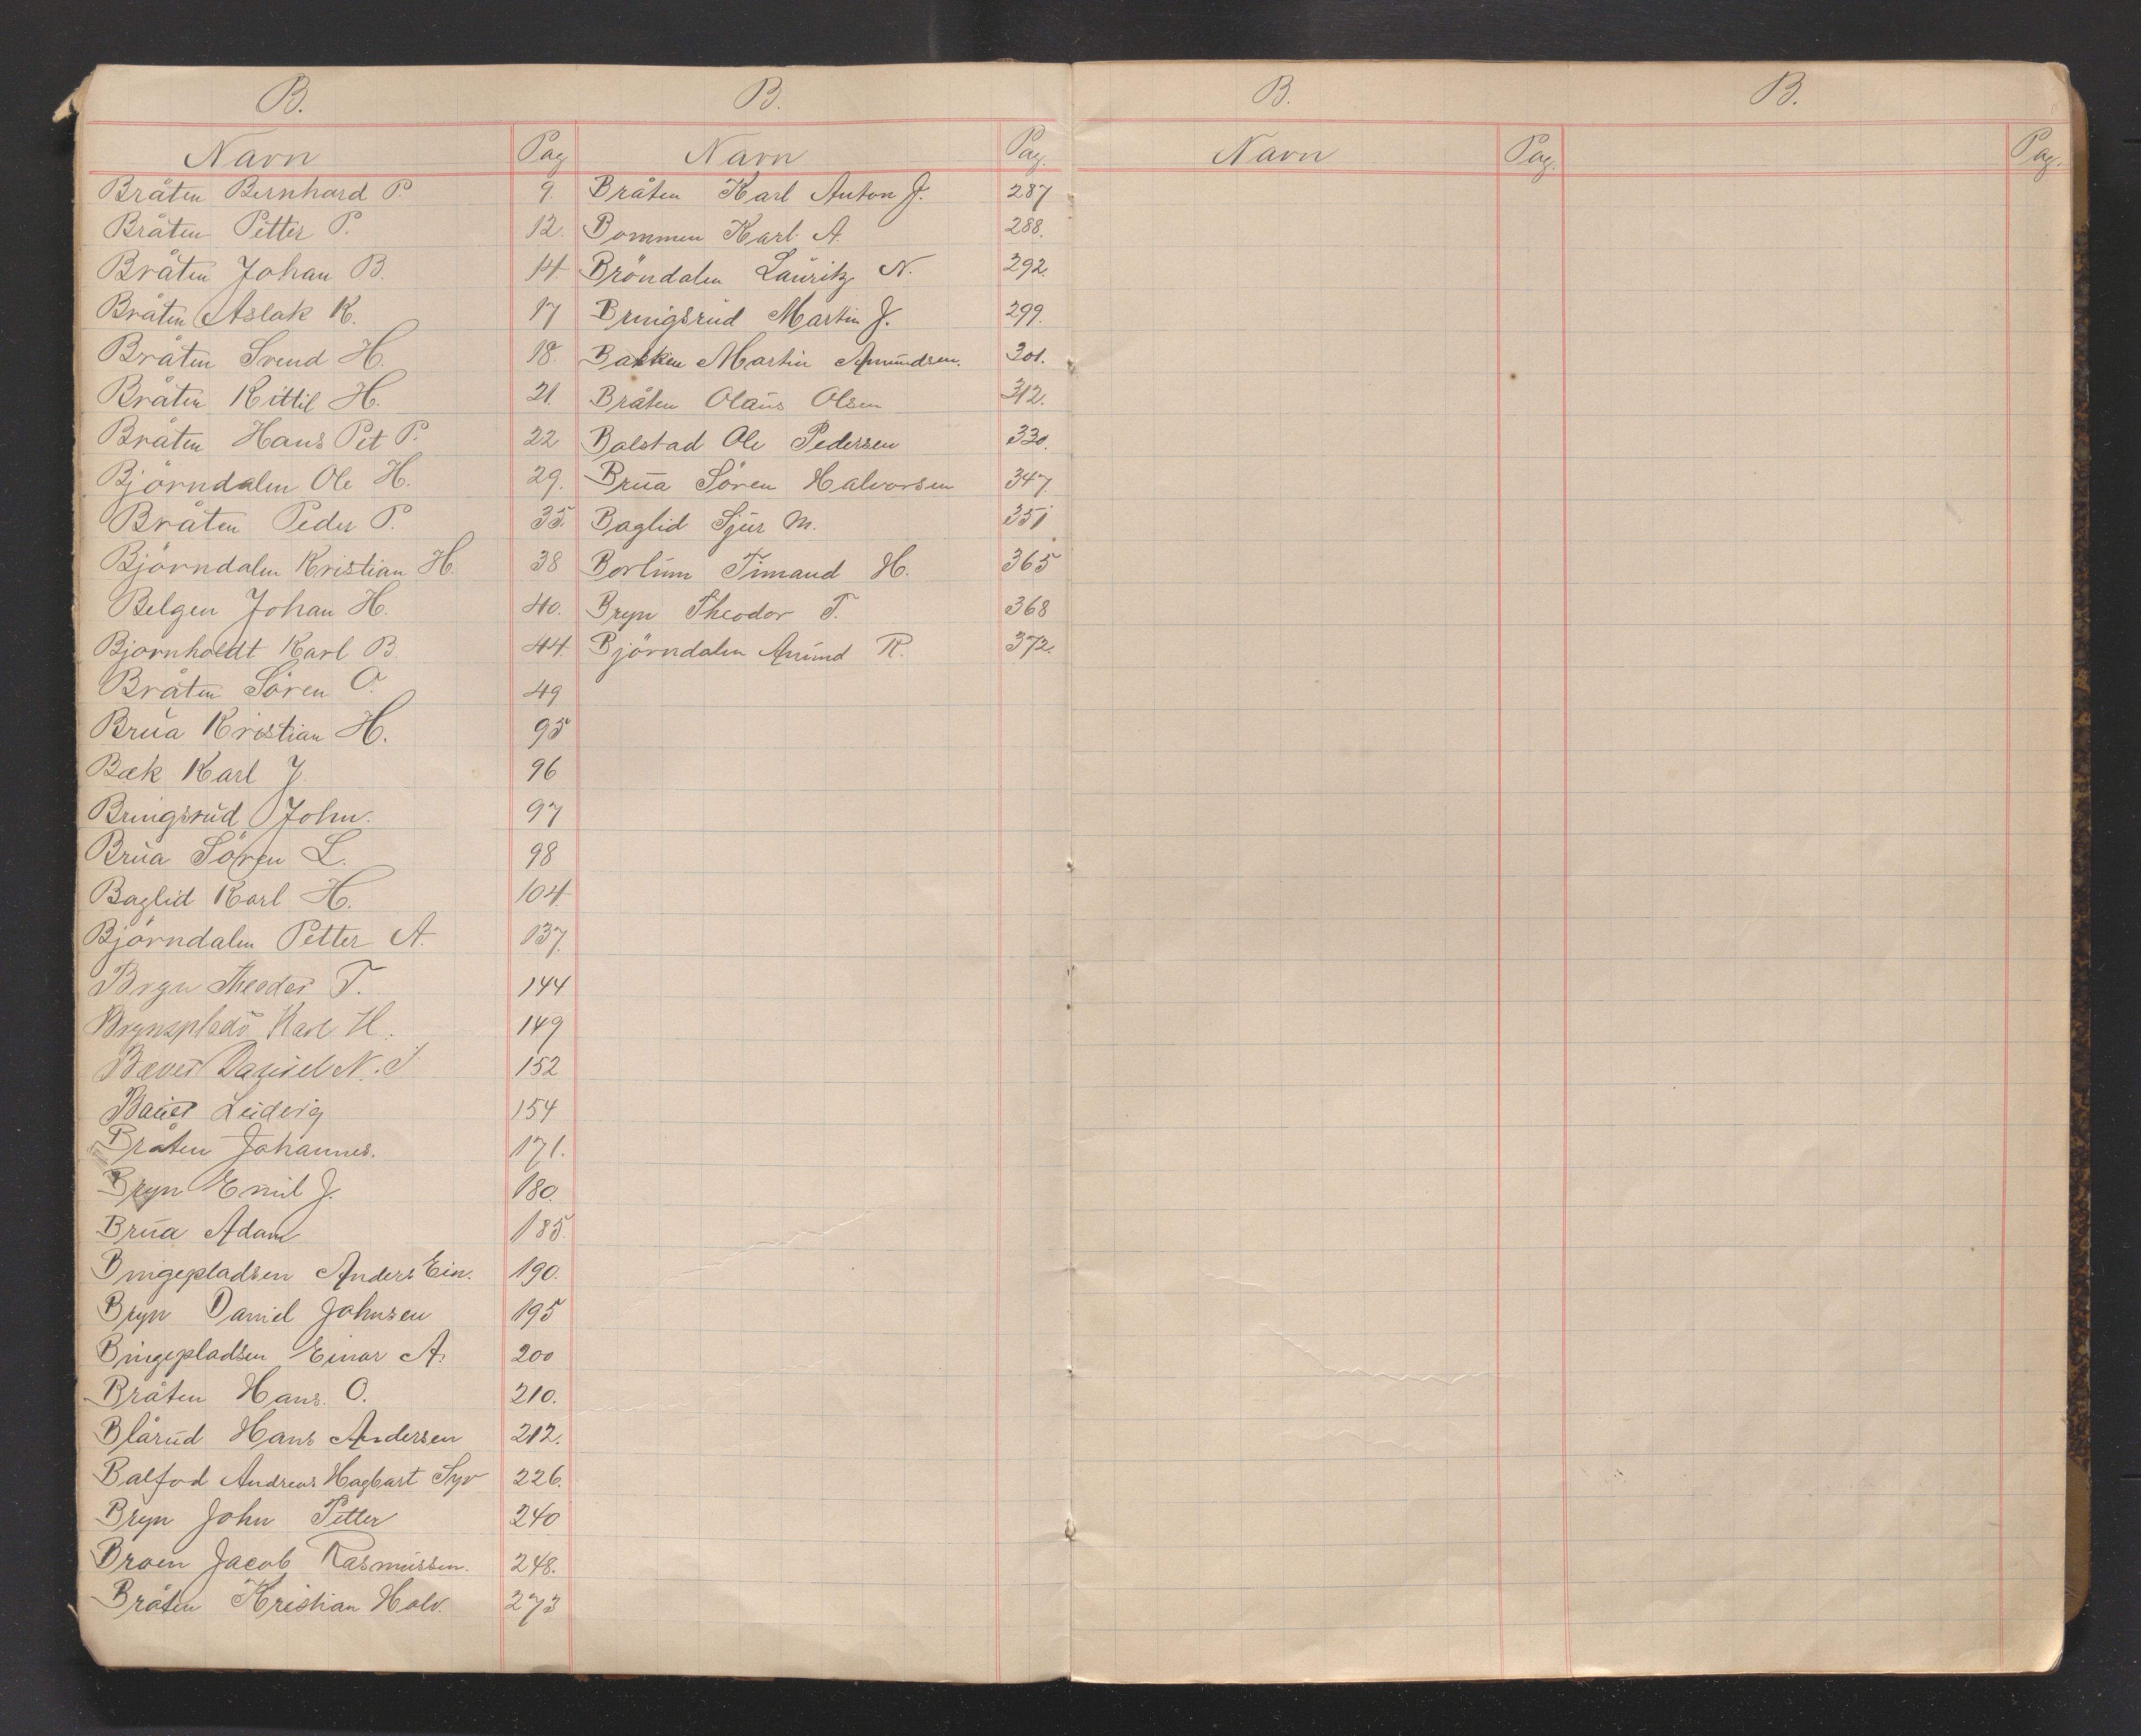 B.
Navn Pag
Bråten Bernhard P. 9.
Bråten Petter P. 12.
Bråten Johan B. 14.
Bråten Aslak K. 17
Bråten Svend H. 18.
Bråten Kittil H. 21.
Bråten Hans Pet P. 22
Björndalen Ole H. 29.
Bråten Peder P. 35.
Björndalen Kristian H. 38
Belgen Johan H. 40.
Bjornholdt Karl B. 44.
Bråten Sören O. 49
Brua Kristian H. 95
Bæk Karl J. 96
Bringsrud John. 97
Brua Sören L. 98
Baglid Karl H. 104
Björndalen Petter A. 137.
Bryn Theodor T. 144
Karl H. 149
Bæver Daniel N. J. 152
Bauer Ludvig 154
Bråten Johannes. 171.
Bryn Emil J. 180.
Brua Adam 185.
Bingepladsen Anders Ein. 190.
Bryn Daniel Johnsen 195
Bingepladsen Einar A. 200
Bråten Hans. O. 210.
Blårud Hans Andersen 212.
Balfod Andreas Hagbart Syv 226.
Bryn John Petter 240
Broen Jacob Rasmussen. 248.
Bråten Kristian Halv. 273
B.
Navn Pag.
Bråten Karl Anton J. 287
Bommen Karl A. 288.
Bröndalen Lauritz N. 292.
Bringsrud Martin J. 299.
Bakken Martin Amundsen. 301.
Bråten Olaus Olsen 312.
Bolstad Ole Pedersen 330.
Brua Sören Halvorsen 347.
Baglid Sjur M. 351
Timand H. 365
Bryn Theodor T. 368
Björndalen Amund R. 372.
B.
Navn Pag.
B.
Pag.